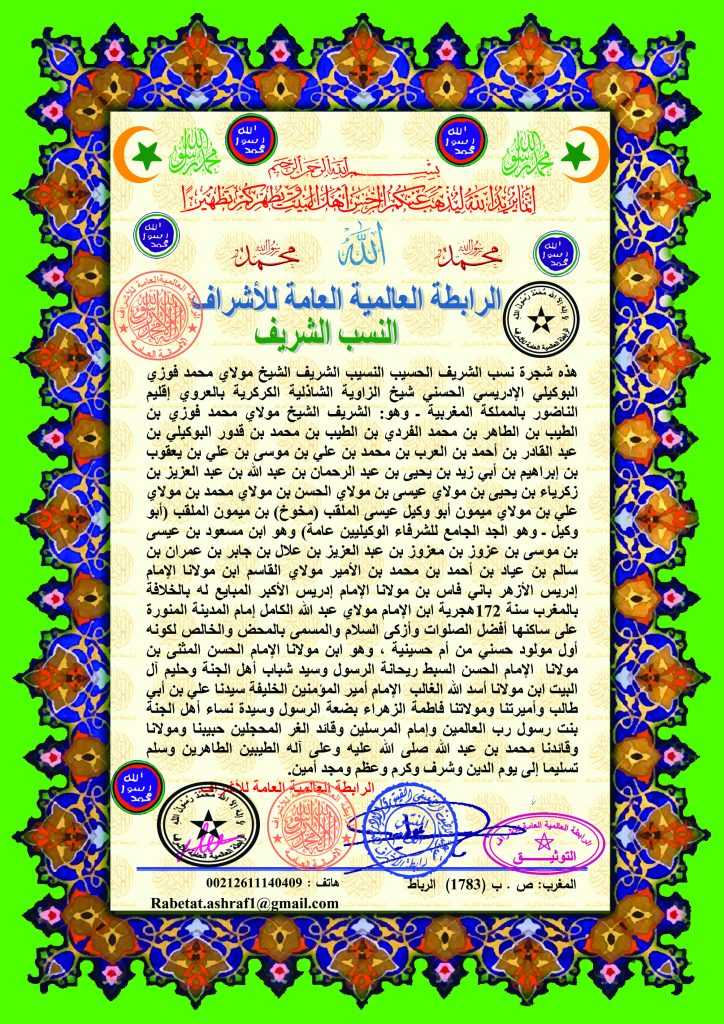 بسم الله الرحمن الرحيم
إنما يريد الله ليذهب عنكم الرجس أهل البيت ويطهركم تطهيرا
محمد رسول الله
الله
محمد رسول الله
الرابطة العالمية العامة للأشراف
النسب الشريف
هذه شجرة نسب الشريف الحسيب النسيب الشريف الشيخ مولاي محمد فوزي
البوكيلي الإدريسي الحسني شيخ الزاوية الشاذلية الكركرية بالعروي إقليم
الناضور بالمملكة المغربية ـ وهو: الشريف الشيخ مولاي محمد فوزي بن
الطيب بن الطاهر بن محمد الفردي بن الطيب بن محمد بن قدور البوكيلي بن
عبد القادر بن أحمد بن العرب بن محمد بن علي بن موسى بن علي بن يعقوب
بن إبراهيم بن أبي زيد بن يحيى بن عبد الرحمان بن عبد الله بن عبد العزيز بن
زكرياء بن يحيى بن مولاي عيسى بن مولاي الحسن بن مولاي محمد بن مولاي
علي بن مولاي ميمون أبو وكيل عيسى الملقب (مخوخ) بن ميمون الملقب (أبو
وكيل ـ وهو الجد الجامع للشرفاء الوكيليين عامة) وهو ابن مسعود بن عيسى
بن موسى بن عزوز بن معزوز بن عبد العزيز بن علال بن جابر بن عمران بن
سالم بن عياد بن أحمد بن محمد بن الأمير مولاي القاسم ابن مولانا الإمام
إدريس الأزهر باني فاس بن مولانا الإمام إدريس الأكبر المبايع له بالخلافة
بالمغرب سنة 172هجرية ابن الإمام مولاي عبد الله الكامل إمام المدينة المنورة
على ساكنها أفضل الصلوات وأزكى السلام والمسمى بالمحض والخالص لكونه
أول مولود حسني من أم حسينية ، وهو ابن مولانا الإمام الحسن المثنى بن
مولانا الإمام الحسن السبط ريحانة الرسول وسيد شباب أهل الجنة وحليم آل
البيت ابن مولانا أسد الله الغالب الإمام أمير المؤمنين الخليفة سيدنا علي بن أبي
طالب وأميرتنا ومولاتنا فاطمة الزهراء بضعة الرسول وسيدة نساء أهل الجنة
بنت رسول رب العالمين وإمام المرسلين وقائد الغر المحجلين حبيبنا ومولانا
وقائدنا محمد بن عبد الله صلى الله عليه وعلى آله الطيبين الطاهرين وسلم
تسليما إلى يوم الدين وشرف وكرم وعظم ومجد أمين.
الرابطة العالمية العامة للأشراف
الرابطة العالمية العامة للأشراف
التوثيق
المغرب: ص . ب (1783) الرباط هاتف : 00212611140409
Rabetat.ashraf1@gmail.com